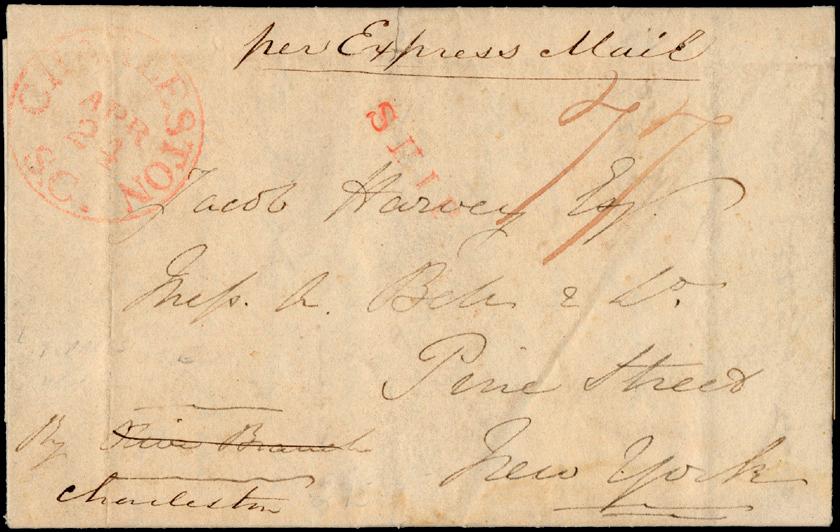 per Express Mail
CHARLESTON S.C.
APR 24
SHIP
77
Jacob Harvey Esq.
Messs. A. Bell & Co.
Pine Street
By Olive Branch
New York
Charleston